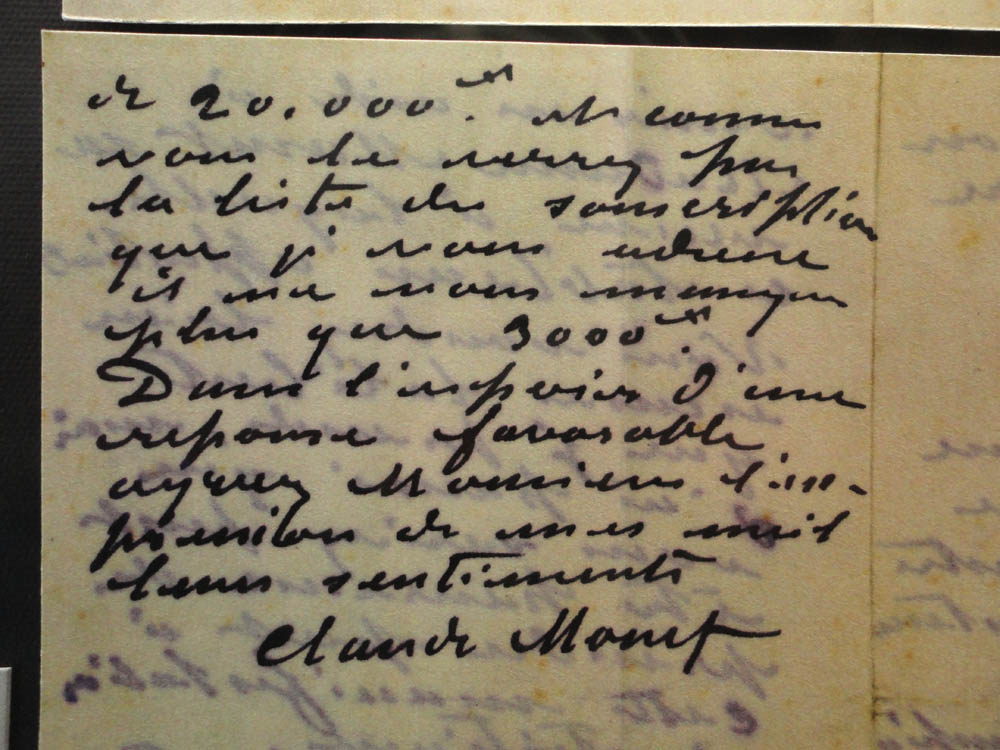 de 20.000 fr. et comme
vous le verrez par
la liste de souscription
que je vous adresse
il ne nous manque
plus que 3000 fr.
Dans l'espoir d'une
reponse favorable
agreez Monsieur l'ex-
pression de mes meil
leurs sentiments
Claude Monet